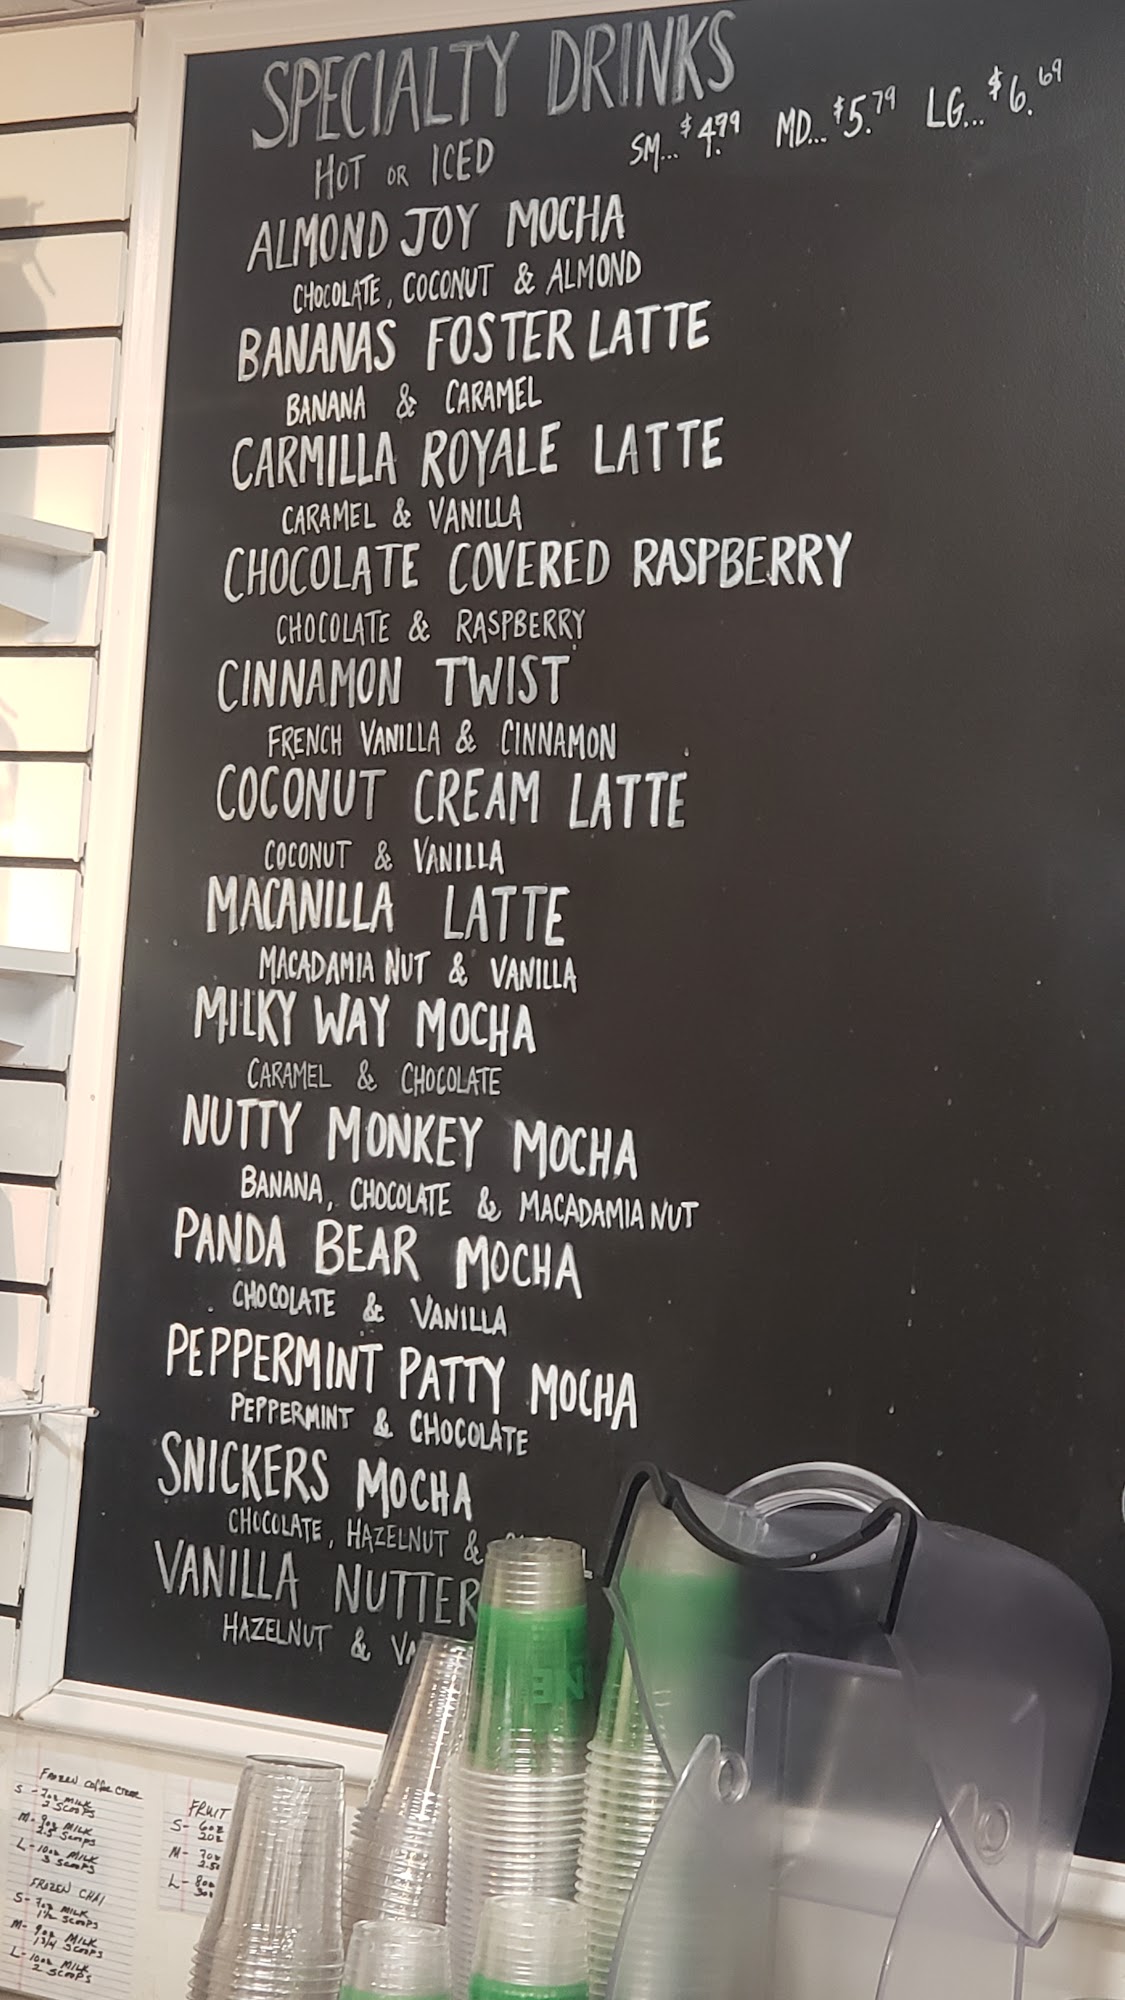 SPECIALTY DRINKS
HOT OR ICED
SM... $4.99 MD... $5.79 LG... $6.69
ALMOND JOY MOCHA
CHOCOLATE, COCONUT & ALMOND
BANANAS FOSTER LATTE
BANANA & CARAMEL
CARMILLA ROYALE LATTE
CARAMEL & VANILLA
CHOCOLATE COVERED RASPBERRY
CHOCOLATE & RASPBERRY
CINNAMON TWIST
FRENCH VANILLA & CINNAMON
COCONUT CREAM LATTE
COCONUT & VANILLA
MACANILLA LATTE
MACADAMIA NUT & VANILLA
MILKY WAY MOCHA
CARAMEL & CHOCOLATE
NUTTY MONKEY MOCHA
BANANA, CHOCOLATE & MACADAMIA NUT
PANDA BEAR MOCHA
CHOCOLATE & VANILLA
PEPPERMINT PATTY MOCHA
PEPPERMINT & CHOCOLATE
SNICKERS MOCHA
CHOCOLATE, HAZELNUT &
VANILLA NUTTER
HAZELNUT & VA
FROZEN Coffee Creme
S - 7oz MILK
2 SCOOPS
M - 9oz MILK
2.5 Scoops
L - 10oz MILK
3 SCOOPS
FROZEN CHAI
S - 7oz MILK
1 1/2 SCOOPS
M - 9oz MILK
1 3/4 SCOOPS
L - 10oz MILK
2 SCOOPS
FRUIT
S - 6oz
M -
L - 8oz